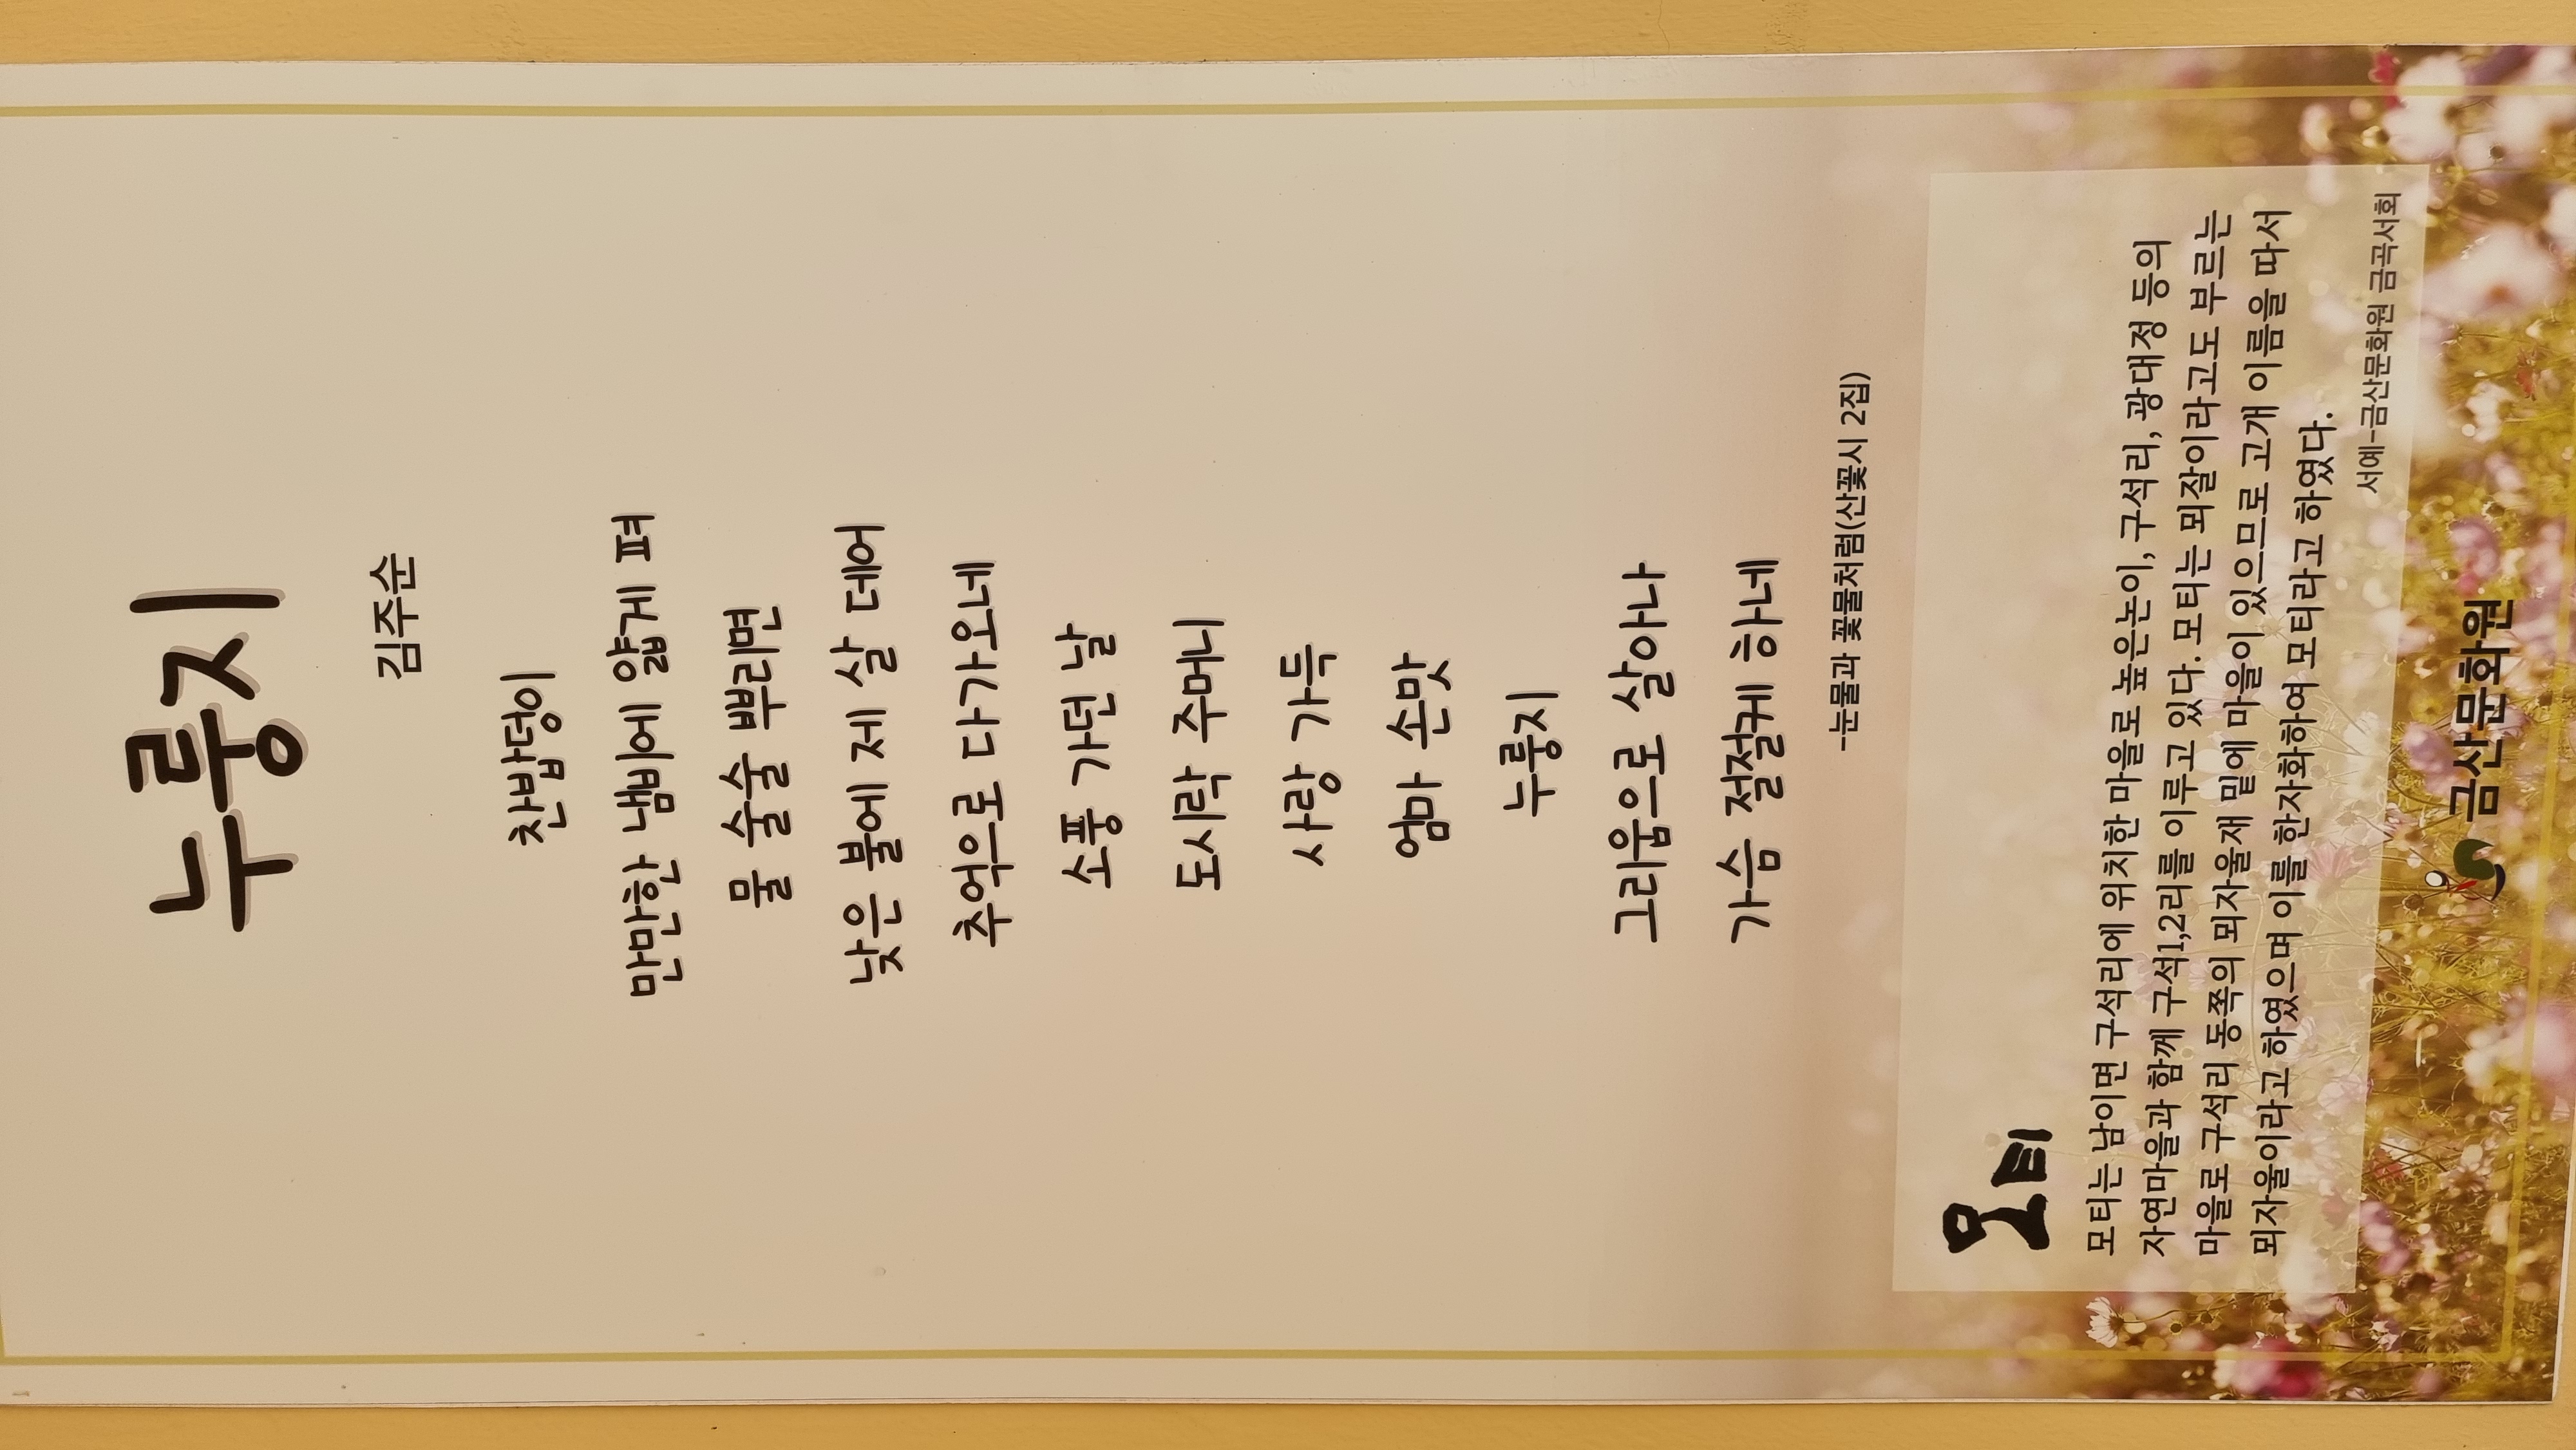 누룽지
김주순
찬밥덩이
만만한 냄비에 얇게 펴
물 술술 뿌리면
낮은 불에 제 살 데어
추억으로 다가오네
소풍 가던 날
도시락 주머니
사랑 가득
엄마 손맛
누룽지
그리움으로 살아나
가슴 절절케 하네
-눈물과 꽃물처럼(산꽃시 2집)
모티
모티는 남이면 구석리에 위치한 마을로 높은논이, 구석리, 광대정 등의
자연마을과 함께 구석1,2리를 이루고 있다. 모티는 뫼잘이라고도 부르는
마을로 구석리 동쪽의 뫼자울재 밑에 마을이 있으므로 고개 이름을 따서
뫼자울이라고 하였으며 이를 한자화하여 모티라고 하였다.
서예-금산문화원 금곡서회
금산문화원